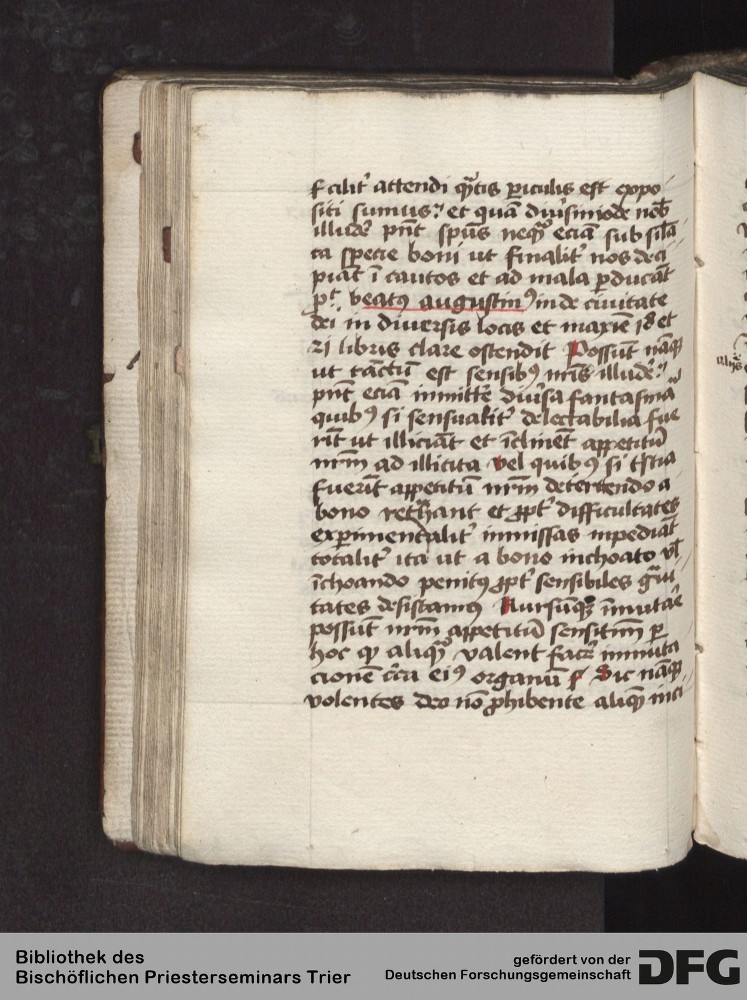 facilit' attendi q͛tis piculis est expo
siti sumus: et quā diūsmode nob̄
illud'e pn̄t spūs neq͛ eciā sub sila
ta specie boni ut finalit' nos deci
piāt ī cautos et ad mala p̱ducāt
p't beatꝰ augustinꝰ in de ciuitate
dei in diuersis locis et maxīe 18 et
21 libris clare ostendit Possūt nāꝗ
ut tactū est sensibꝰ nr̄is illud'e:
pn̄t eciā inmitt'e diūsa fantasma
quibꝰ si sensualit' delectabilia fue
rīt ut illiciāt et īclinēt appetitū
nr̄m ad illicita vel quibꝰ si t'stia
fuerīt appetitū nr̄m deterrendo a
bono ret͛hant et ꝓpt' difficultates
exp̱imentalit' inmissas inpediāt
totalit' ita ut a bono inchoato vl̄
īchoando penitꝰ ꝓpt' sensibiles g͛ui
tates desistamꝰ Rursūꝗ īmutar̄e
possūt nr̄m appetitū sensitiuū p̱
hoc ꝙ aliq͛ valent fac'e inmuta
cionē c̄ca eiꝰ organū Sic nāꝗ
volentes deo nō ꝓhibente aliq͛ inci
aliꝰs
Bibliothek des
Bischöflichen Priesterseminars Trier
gefördert von der
Deutschen Forschungsgemeinschaft DFG